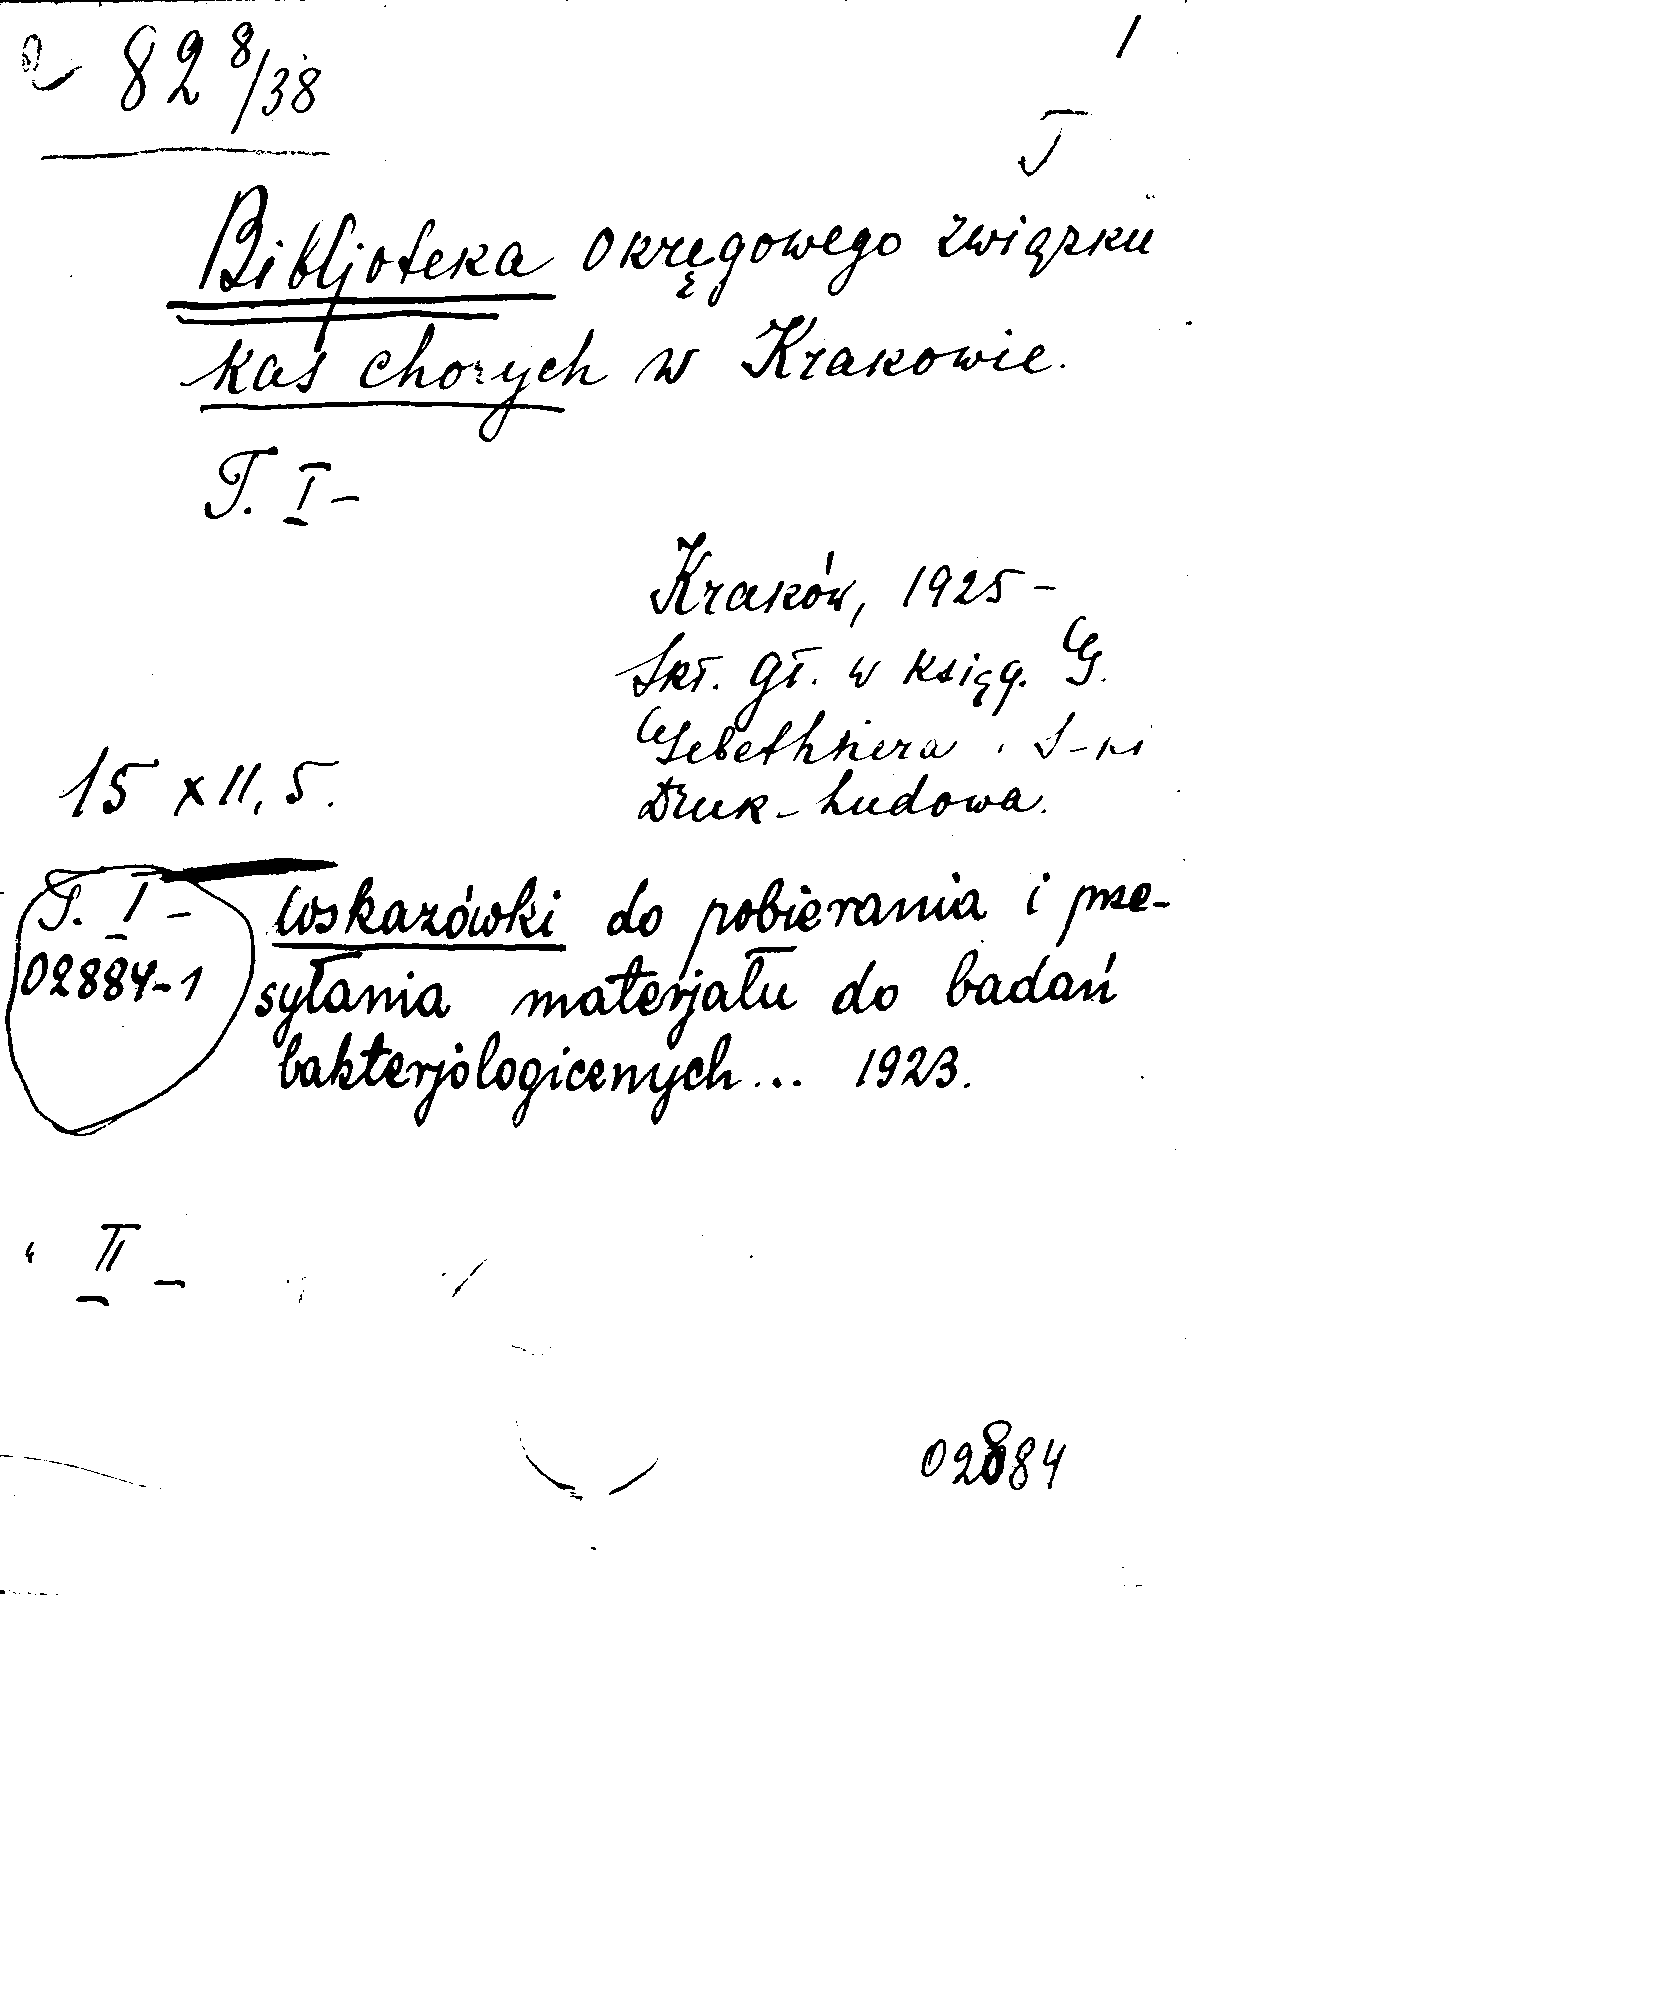 82 8/38
I
Bibljoteka okręgowego związku
kas chorych w Krakowie.
T. I-
Kraków, 1925 -
Skł. gł. w księg. G.
Gebethnera i S-ki
Druk. Ludowa.
15 x 11,5.
T. I - Wskazówki do pobierania i prze-
02884-1 syłania materjału do badań
bakterjologicznych... 1923.
" II -
02884